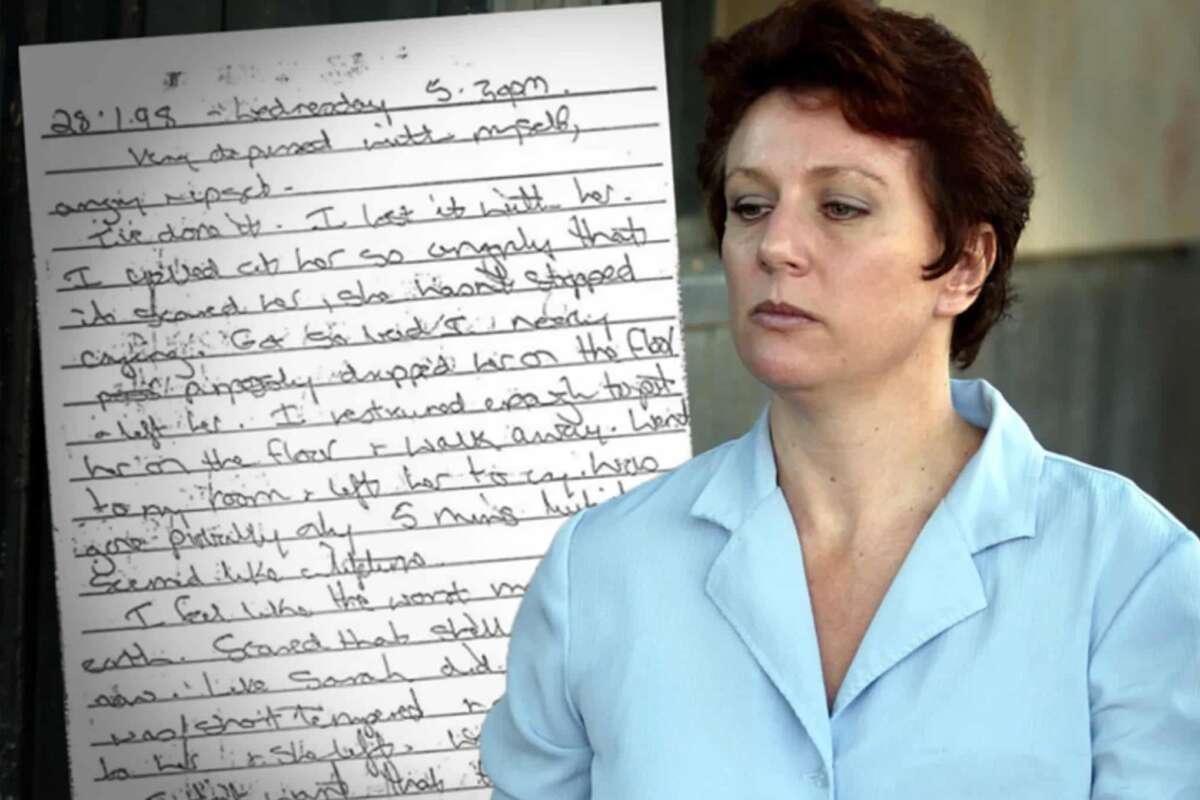 28.1.98 - Wednesday 5.30pm.
Very depressed with myself,
angry & upset-
I've done it. I lost it with her.
I yelled at her so angrily that
it scared her, she hasn't stopped
crying. Got so bad I nearly
purposely dropped her on the floor
& left her. I restrained enough to put
her on the floor & walk away. Went
to my room & left her to cry. Was
gone probably only 5 mins but it
seemed like a lifetime.
I feel like the worst m
earth. Scared that she'll
now. Like Sarah did.
was short tempered &
to her & she left.
want that t